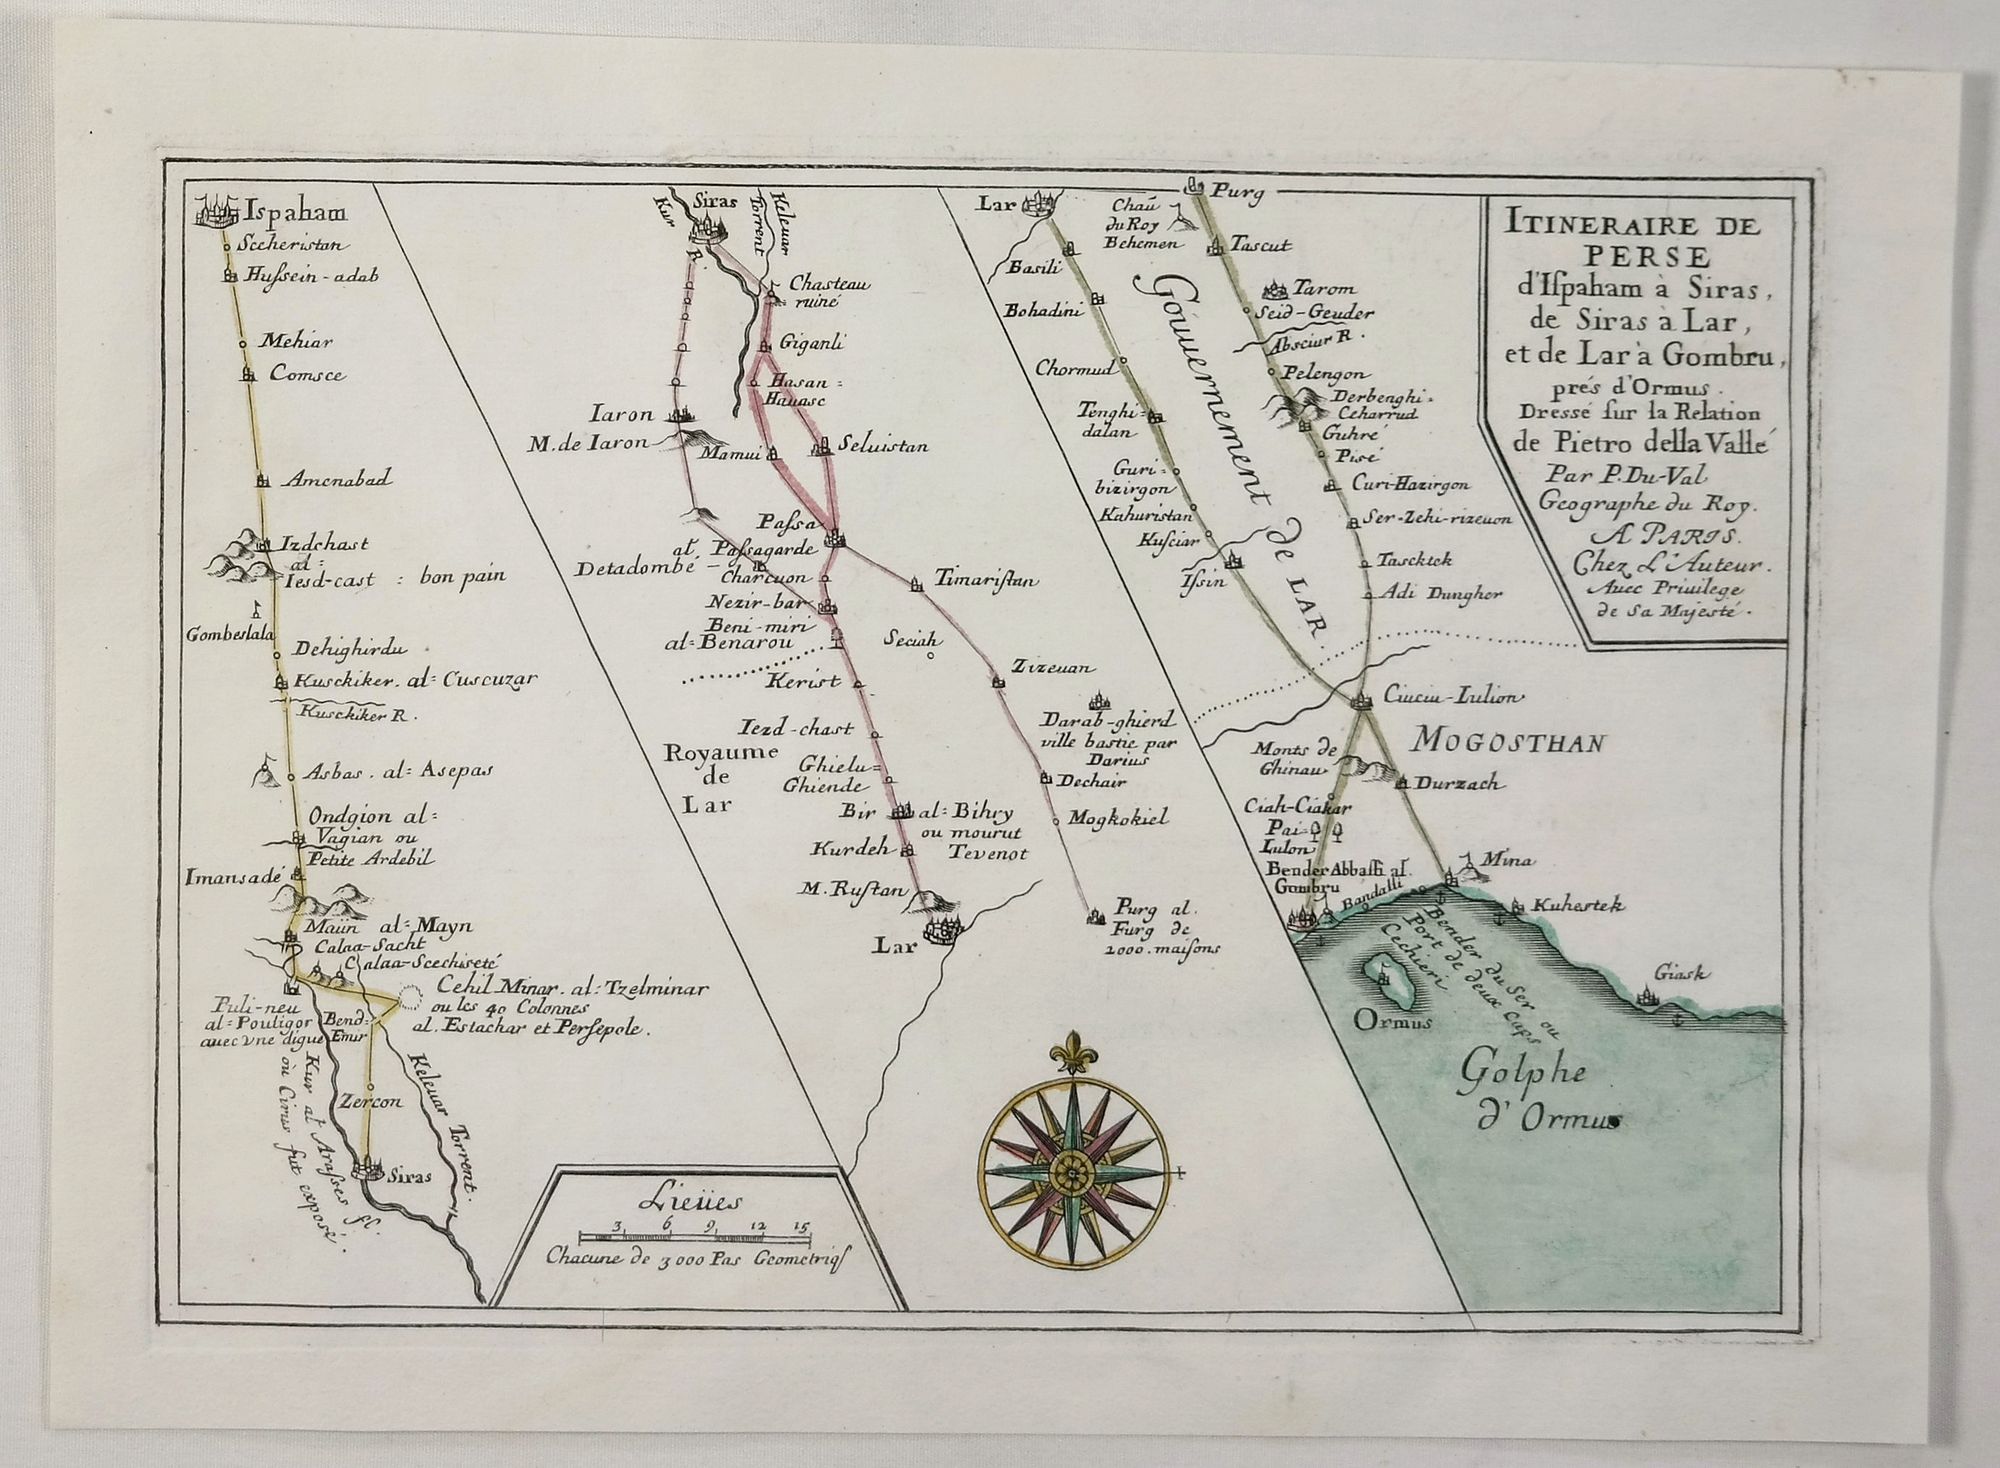 ITINERAIRE DE
PERSE
d'Ispaham à Siras,
de Siras à Lar,
et de Lar à Gombru,
prés d'Ormus.
Dressé sur la Relation
de Pietro della Vallé
Par P. Du-Val
Geographe du Roy.
A PARIS.
Chez L'Auteur.
Auec Priuilege
de Sa Majesté.
Ispaham
Scheristan
Hussein-adab
Mehiar
Comsce
Amenabad
Izdchast
al=
Iesd-cast : bon pain
Gombeslala
Dehighirdu
Kuschiker. al= Cuscuzar
Kuschiker R.
Asbas. al= Asepas
Ondgion al=
Vagian ou
Petite Ardebil
Imansadé
Maiin al=Mayn
Calaa-Sacht
Calaa-Scechiseté
Cehil Minar. al=Tzelminar
ou les 40 Colonnes
al. Estachar et Persepole.
Puli-neu
al=Pouligor
auec vne digue
Bend=
Emir
Kur al Arasses fl.
ou Cirus fut exposé.
Keleuar Torrent.
Zercon
Siras
Lieües
3 6 9 12 15
Chacune de 3000 Pas Geometriqs
Kur R.
Siras
Keleuar
Torrent
Chasteau
ruiné
Giganli
Hasan=
Hauasc
Iaron
M. de Iaron
Mamui
Seluistan
Passa
al Passagarde
Detadombé
Charcuon
Timaristan
Nezir-bar
Beni-miri
al=Benarou
Seciah
Kerist
Zizeuan
Iezd-chast
Darab-ghierd
ville bastie par
Darius
Royaume
de
Lar
Ghielu=
Ghiende
Dechair
Bir al=Bihry
ou mourut
Tevenot
Mogkokiel
Kurdeh
M. Rustan
Lar
Purg al.
Furg de
2000. maisons
Lar
Basili
Bohadini
Chormud
Tenghi=
dalan
Guri=
bizirgon
Kahuristan
Kusciar
Issin
Gouuernement de LAR.
Purg
Chaũ
du Roy
Behemen
Tascut
Tarom
Seid-Geuder
Absciur R.
Pelengon
Derbenghi=
Ceharrud
Guhré
Pisé
Curi-Hazirgon
Ser-Zehi-rizeuon
Tascktek
Adi Dungher
Ciuciu-Iulion
MOGOSTHAN
Monts de
Ghinau
Durzach
Ciah-Ciakar
Pai=
Lulon
Bender Abbassi al.
Gombru
Bandalli
Mina
Kuhestek
Bender du Ser ou
Port de deux Caps
Cechieri
Giask
Ormus
Golphe
d'Ormus